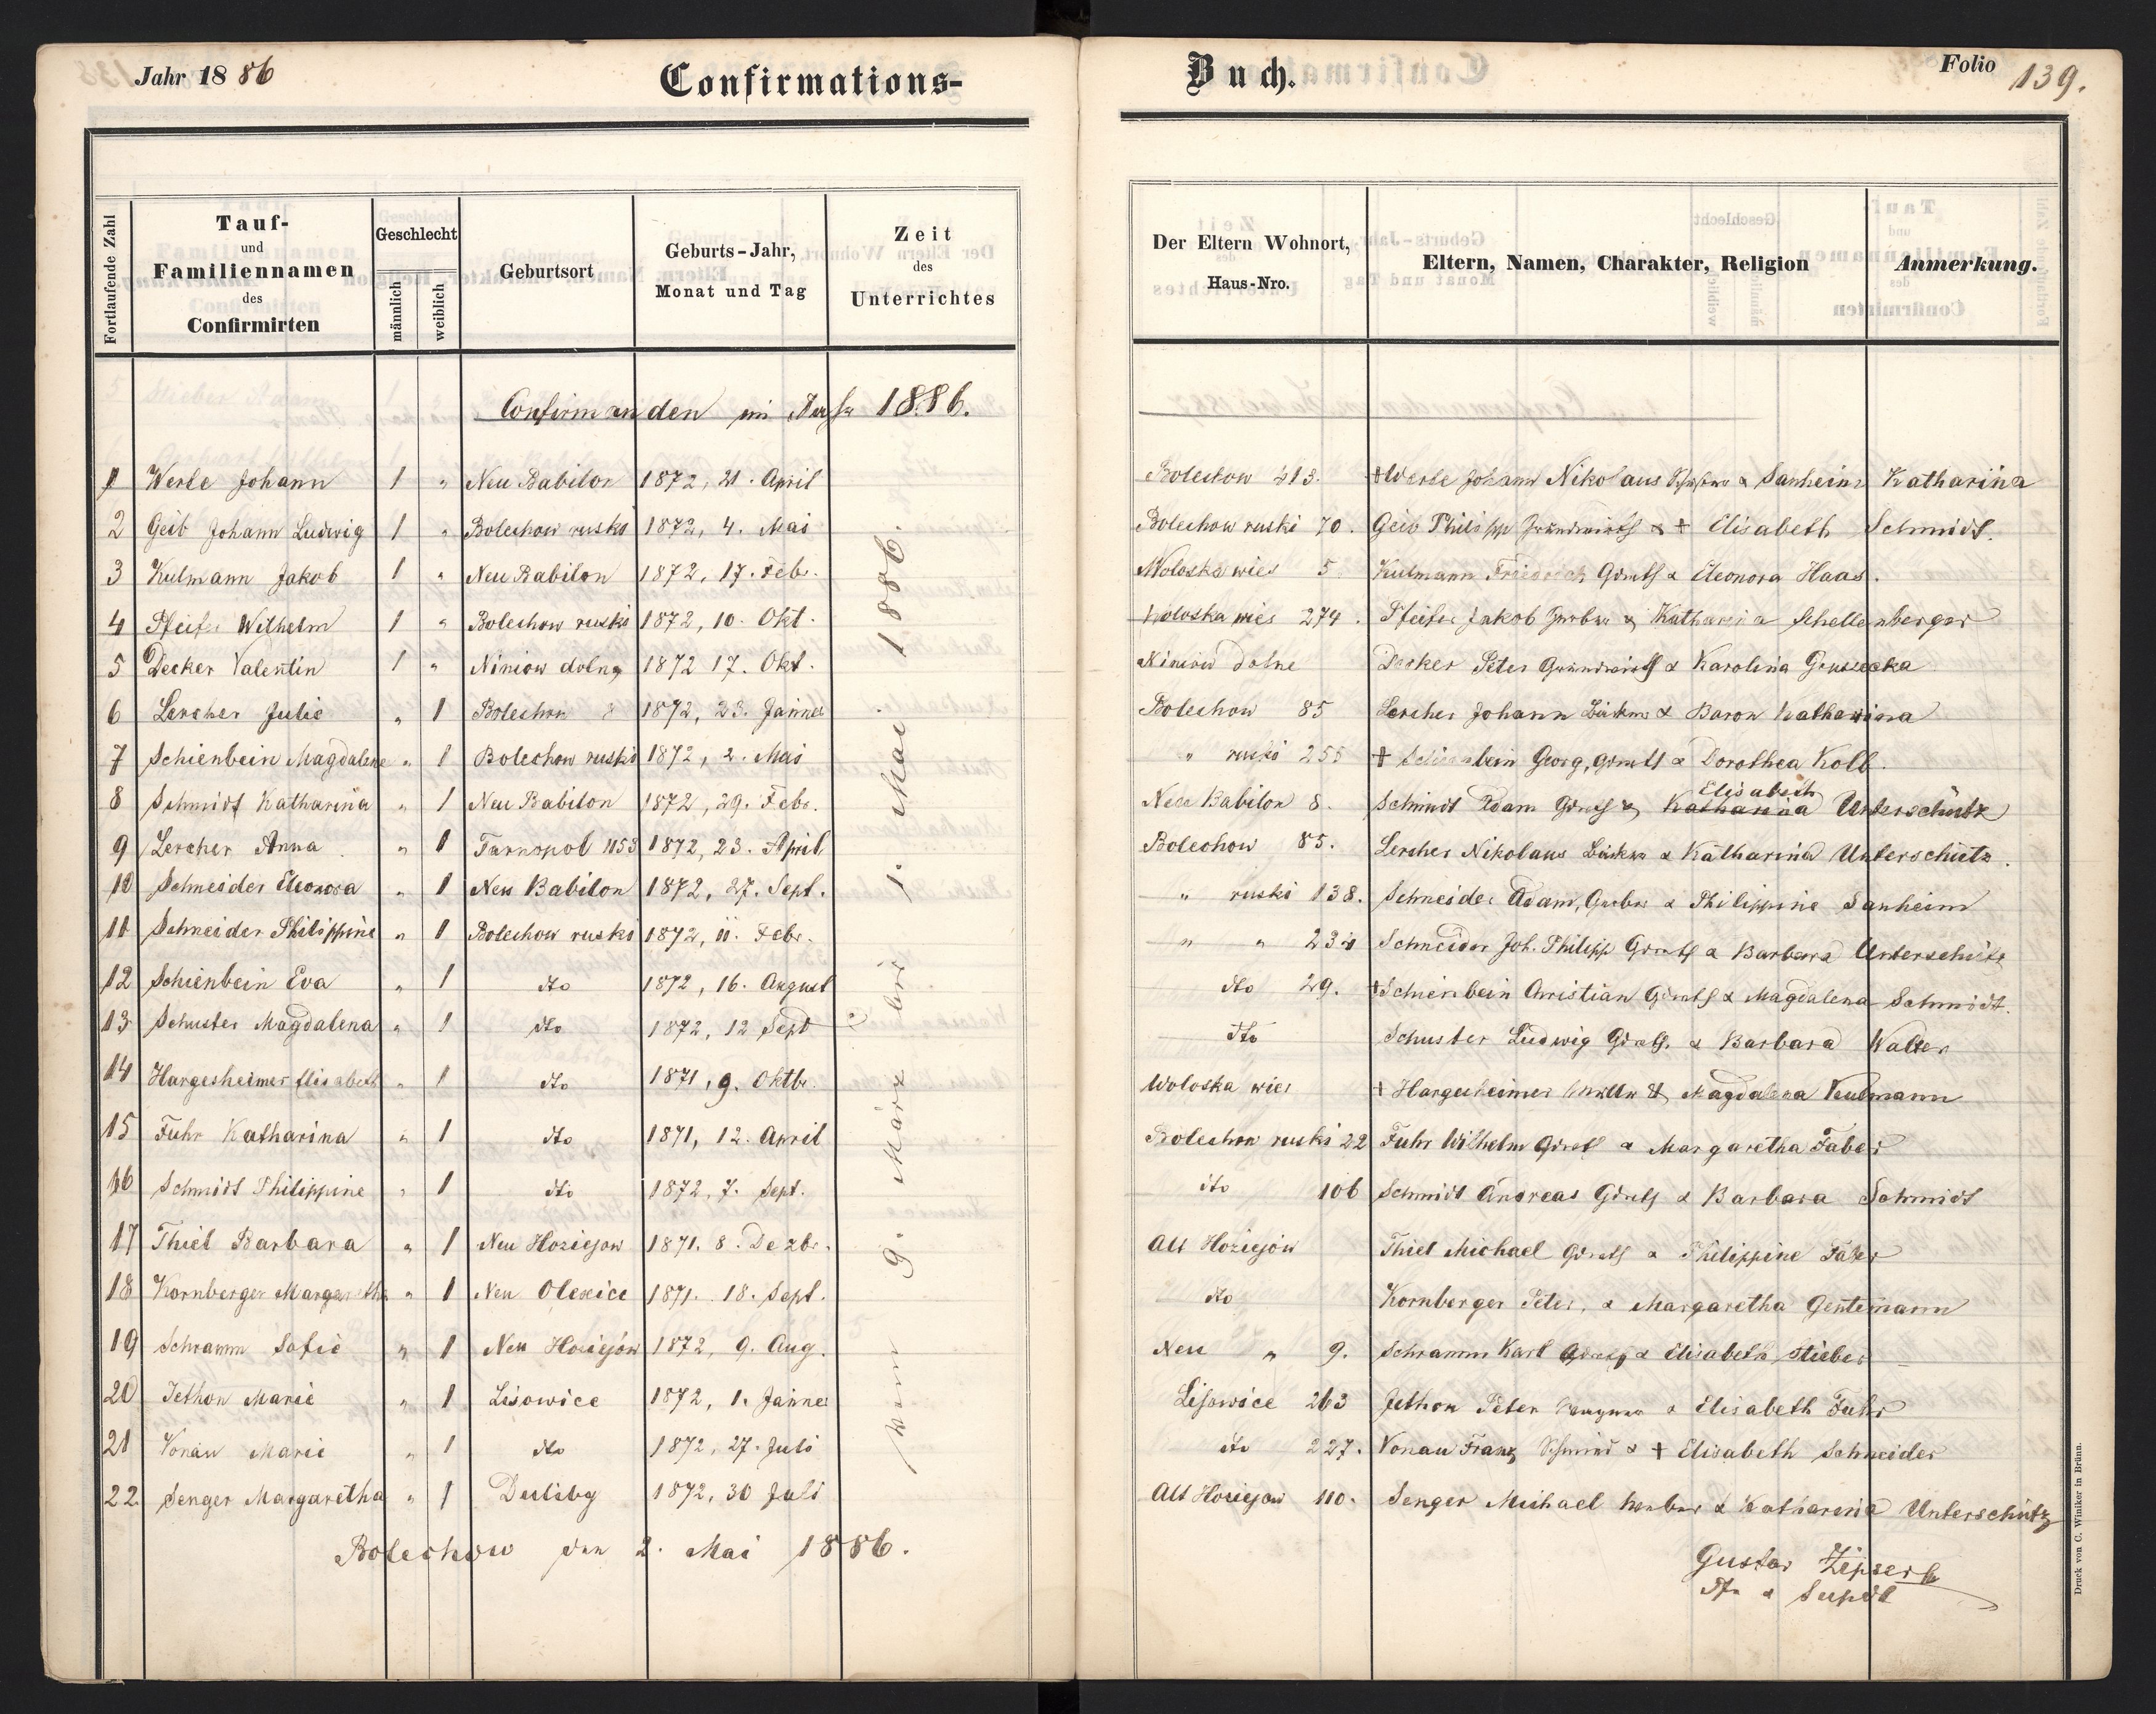 Jahr 1886 Confirmations-Buch. Folio 139.
Fortlaufende Zahl
Tauf- und Familiennamen des Confirmirten
Geschlecht
männlich
weiblich
Geburtsort
Geburts-Jahr, Monat und Tag
Zeit des Unterrichtes
Der Eltern Wohnort, Haus-Nro.
Eltern, Namen, Charakter, Religion
Anmerkung.
Confirmanden im Jahr 1886.
1 Werle Johann 1 " Neu Babilon 1872, 21. April Bolechow 213. + Werle Johann Nikolaus & Sanheim Katharina
2 Geib Johann Ludwig 1 " Bolechow ruski 1872, 4. Mai Bolechow ruski 70. Geib Philipp Grundwirth & + Elisabeth Schmidt.
3 Kulmann Jakob 1 " Neu Babilon 1872, 17. Feb. Woloska wies 5 Kulmann Friedrich Grmth & Eleonora Haas.
4 Pfeifer Wilhelm 1 " Bolechow ruski 1872, 10. Okt. Woloska wies 274. Pfeifer Jakob & Katharina Schellenberger
5 Decker Valentin 1 " Niniow dolny 1872 17. Okt. Niniow dolne Decker Peter Grundwirth & Karolina
6 Lercher Julie " 1 Bolechow 1872, 23. Jänner Bolechow 85 Lercher Johann & Baron Katharina
7 Schienbein Magdalene " 1 Bolechow ruski 1872, 2. Mai " ruski 255 + Schienbein Georg, Grmth & Dorothea Kolb.
8 Schmidt Katharina " 1 Neu Babilon 1872, 29. Febr. Neu Babilon 8. Schmidt Adam Grmth & Katharina Elisabeth Unterschütz
9 Lercher Anna " 1 Tarnopol 1153 1872, 23. April Bolechow 85. Lercher Nikolaus & Katharina Unterschütz.
10 Schneider Eleonora " 1 Neu Babilon 1872, 27. Sept. " ruski 138. Schneider Adam, & Philippine Sanheim
11 Schneider Philippine " 1 Bolechow ruski 1872, 11. Febr. " " Schneider Joh. Philipp Grmth & Barbara Unterschütz
12 Schienbein Eva " 1 dto 1872, 16. August dto 29. + Schienbein Christian Grmth & Magdalena Schmidt.
13 Schuster Magdalena " 1 dto 1872, 12 Sept dto Schuster Ludwig Grmth. & Barbara Walter
14 Hargesheimer Elisabeth " 1 dto 1871, 9. Oktbr. Woloska wies + Hargesheimer & Magdalena Kulmann
15 Fuhr Katharina " 1 dto 1871, 12. April Bolechow ruski 22 Fuhr Wilhelm Grmth & Margaretha Faber
16 Schmidt Philippine " 1 dto 1872, 7. Sept. dto 106 Schmidt Andreas Grmth & Barbara Schmidt
17 Thiel Barbara " 1 Neu Hoziejow 1871. 8. Dezbr. Alt Hoziejów Thiel Michael Grmth & Philippine
18 Kornberger Margaretha " 1 Neu Olexice 1871. 18. Sept. dto Kornberger Peter, & Margaretha Gentemann
19 Schramm Sofie " 1 Neu Hoziejów 1872, 9. Aug. Neu " 9. Schramm Karl & Elisabeth Stieber
20 Jethon Marie " 1 Lisowice 1872, 1. Jänner Lisowice 263 Jethon Peter & Elisabeth Fuhr
21 Vonau Marie " 1 dto 1872, 27. Juli dto 227. Vonau Franz Schmied & + Elisabeth Schneider
22. Senger Margaretha " 1 Duliby 1872, 30 Juli Alt Hoziejow 110. Senger Michael & Katharina Unterschütz
vom 9. März bis 1. Mai 1886.
Bolechow den 2. Mai 1886.
Gustav Zipser
Pfr & Supdt
Druck von C. Winiker in Brünn.